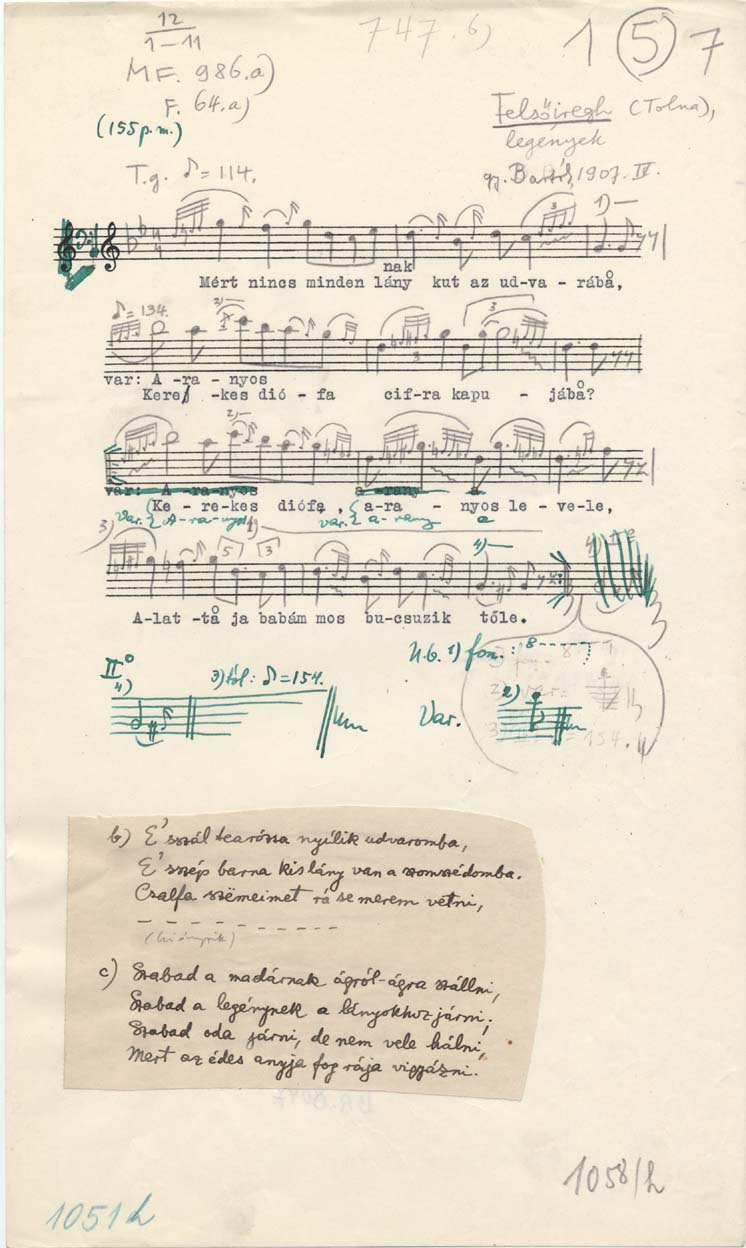 12
1-11
747.b)
1 5 7
MF. 986.a)
F. 64.a)
(155 p.m.)
Felsőiregh (Tolna),
legények
gy. Bartók, 1907. IV.
T.g. ♪= 114.
1)—
3
nak
Mért nincs minden lány kut az ud-va - rábå,
♪= 134.
2)—
3
3
var: A -ra - nyos
Kere -kes dió - fa cif-ra kapu - jábå?
2)—
var: A -ra-nyos a -rany a
Ke - re-kes diófa, a-ra - nyos le - ve-le,
var. A-ra-nyos var. a-rany a
3)
5
3
4)—
4) IIº
A-lat -tå ja babám mos bu-csuzik tőle.
IIº
4)
3)tól: ♪= 154.
N.b. 1) fon.: 8
Var. 2)
b) E' szál tearózsa nyílik udvaromba,
E' szép barna kislány van a szomszédomba.
Csalfa szëmeimet rá se merem vetni,
(hiányzik)
c) Szabad a madárnak ágról-ágra szállni,
Szabad a legénynek a lányokhoz járni;
Szabad oda járni, de nem vele hálni,
Mert az édes anyja fog rája vigyázni.
1058/h
1051 h